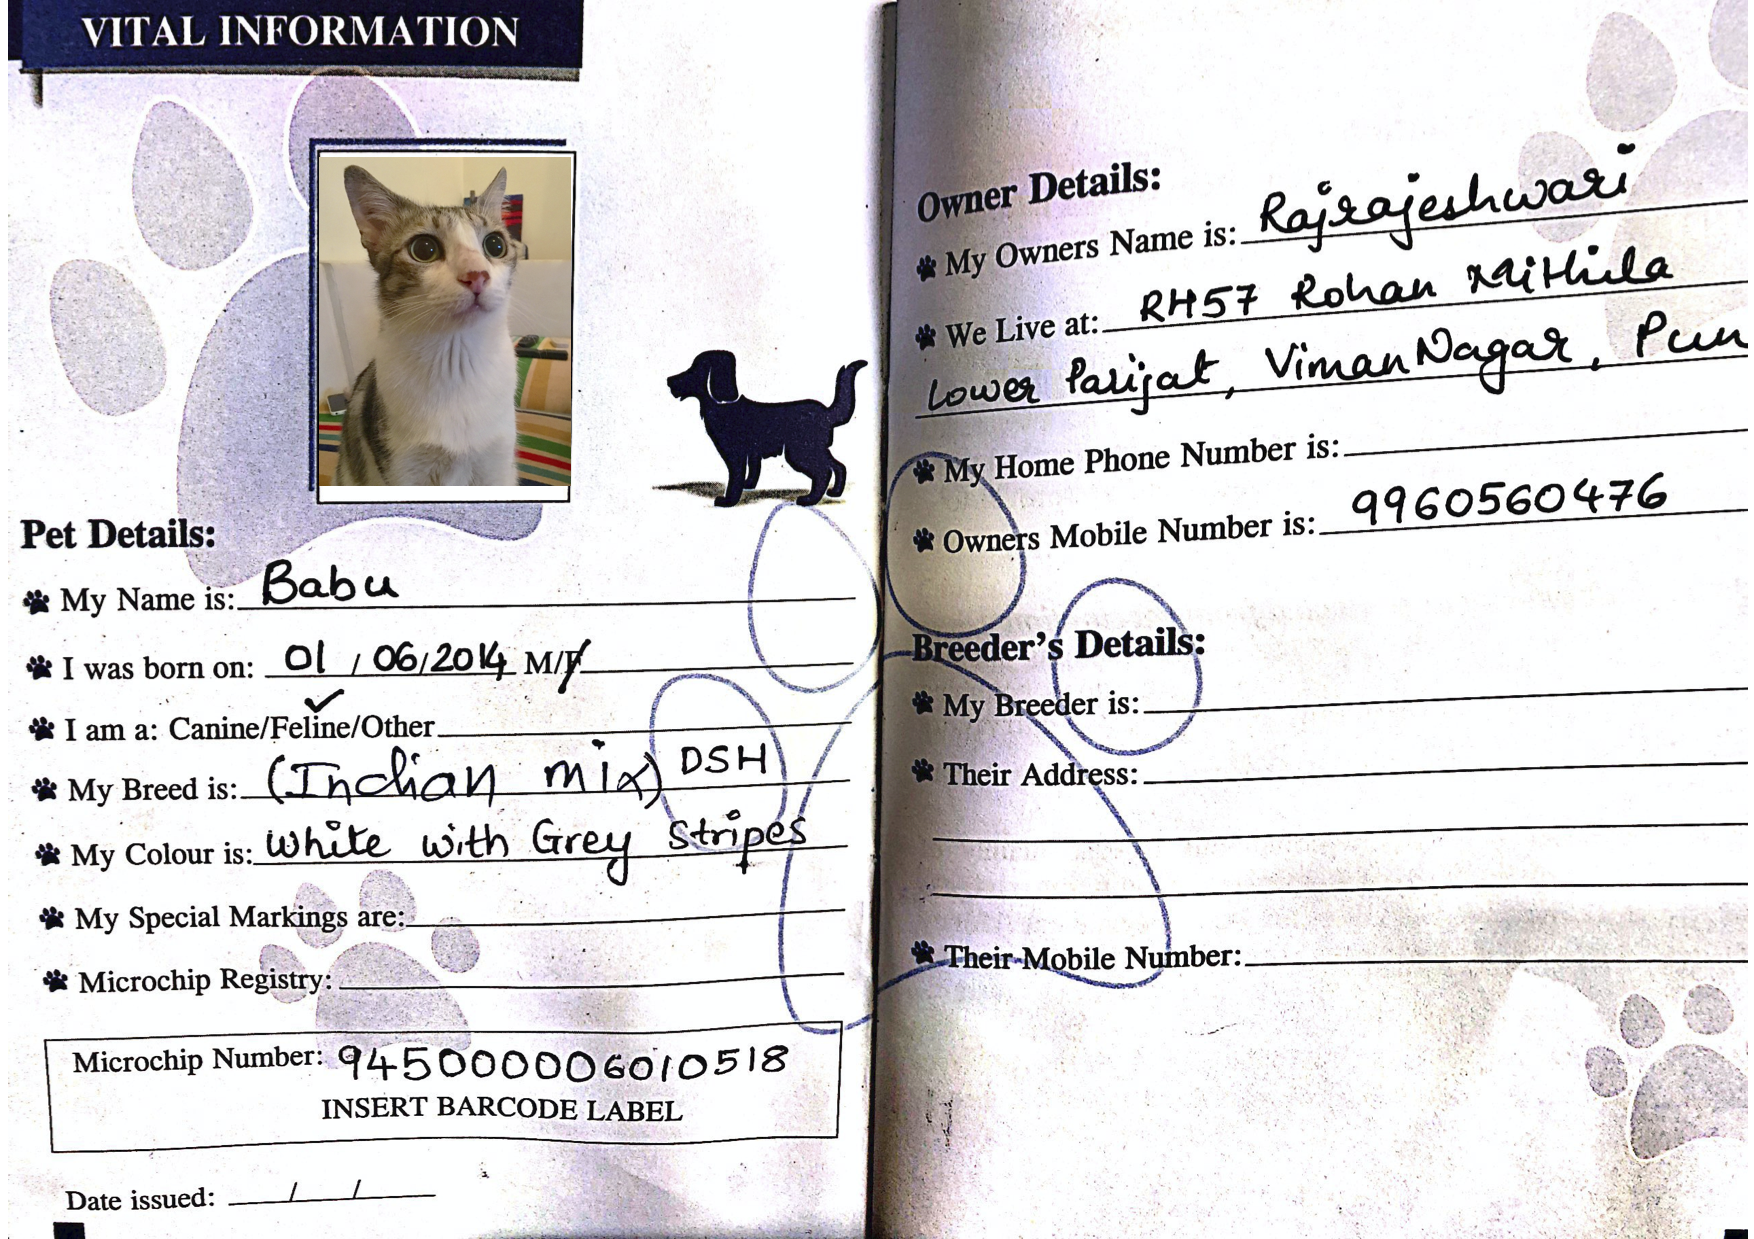 VITAL INFORMATION
Pet Details:
My Name is: Babu
I was born on: 01 / 06/2014 M/F
I am a: Canine/Feline/Other
My Breed is: (Indian mix) DSH
My Colour is: White with Grey Stripes
My Special Markings are:
Microchip Registry:
Microchip Number: 945000006010518
INSERT BARCODE LABEL
Date issued: / /
Owner Details:
My Owners Name is: Rajrajeshwari
We Live at: RH57 Rohan Mithila
Lower Parijat, Viman Nagar, Pun
My Home Phone Number is:
Owners Mobile Number is: 9960560476
Breeder's Details:
My Breeder is:
Their Address:
Their Mobile Number: